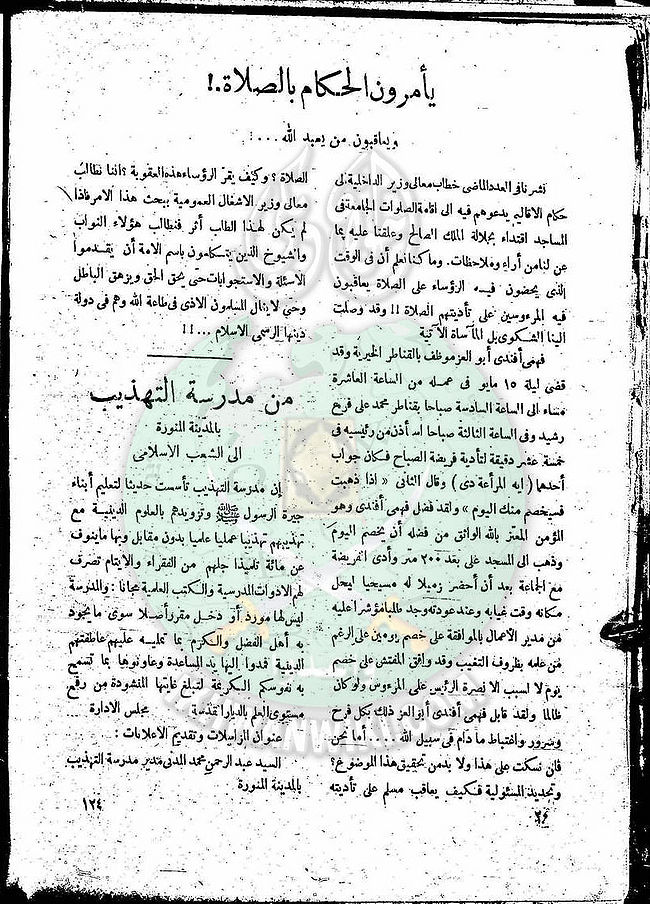 يأمرون الحكام بالصلاة.!
ويعاقبون من يعبد الله ...!
نشرنا فى العدد الماضى خطاب معالى وزير الداخلية الى
حكام الاقاليم يدعوهم فيه الى اقامة الصلوات الجامعة فى
المساجد اقتداء بجلالة الملك الصالح وعلقنا عليه بما
عن لنا من آراء وملاحظات. وما كنا نعلم أن فى الوقت
الذى يحضون فيه الرؤساء على الصلاة يعاقبون
فيه المرءوسين على تأديتهم الصلاة !! وقد وصلت
الينا الشكوى بل المأساة الآتية
فهمى أفندى أبو العز موظف بالقناطر الخيرية وقد
قضى ليلة ١٥ مايو فى عمله من الساعة العاشرة
مساء الى الساعة السادسة صباحا بقناطر محمد على فرع
رشيد وفى الساعة الثالثة صباحا استأذن من رئيسيه فى
خمسة عشر دقيقة لتأدية فريضة الصباح فكان جواب
أحدهما (ايه المرأعة دى) وقال الثانى « اذا ذهبت
فسيخصم منك اليوم » ولقد فضل فهمى أفندى وهو
المؤمن المعتز بالله الواثق من فضله أن يخصم اليوم
وذهب الى المسجد على بعد ٢٠٠ متر وأدى الفريضة
مع الجماعة بعد أن أحضر زميلا له مسيحيا ليحل
مكانه وقت غيابه وعند عودته وجد طلبا مؤشرا عليه
من مدير الأعمال بالموافقة على خصم يومين على الرغم
من علمه بظروف التغيب وقد وافق المفتش على خصم
يوم لا لسبب الا نصرة الرئيس على المرءوس ولو كان
ظالما ولقد قابل فهمى أفندى أبو العز ذلك بكل فرح
وسرور واغتباط ما دام فى سبيل الله .... أما نحن
فلن نسكت على هذا ولا بد من تحقيق هذا الموضوع؟
وتحديد المسئولية فكيف يعاقب مسلم على تأديته
الصلاة ؟ وكيف يقر الرؤساء هذه العقوبة ؟ اننا نطالب
معالى وزير الاشغال العمومية ببحث هذا الامر فاذا
لم يكن لهذا الطلب أثر فنطالب هؤلاء النواب
والشيوخ الذين يتكلمون باسم الأمة أن يقدموا
الاسئلة والاستجوابات حتى يحق الحق ويزهق الباطل
وحتى لا ينال المسلمون الاذى فى طاعة الله وهم فى دولة
دينها الرسمى الاسلام ...!!
من مدرسة التهذيب
بالمدينة المنورة
الى الشعب الاسلامى
إن مدرسة التهذيب تأسست حديثا لتعليم أبناء
جيرة الرسول ﷺ وتزويدهم بالعلوم الدينية مع
تهذيبهم تهذيبا عمليا علميا بدون مقابل وبها ما ينوف
عن مائة تلميذا جلهم من الفقراء والايتام تصرف
لهم الادوات المدرسية والكتب العلمية مجانا : والمدرسة
ليس لها مورد أو دخل مقرر أصلا سوى ما يجود
به أهل الفضل والكرم بما تمليه عليهم عاطفتهم
الدينية فمدوا اليها يد المساعدة وعاونوها بما تسمح
به نفوسكم الكريمة لتبلغ غايتها المنشودة من رفع
مستوى العلم بالديار المقدسة . مجلس الادارة
عنوان المراسلات وتقديم الاعلانات :
السيد عبد الرحمن محمد المدنى مدير مدرسة التهذيب
بالمدينة المنورة
٢٤
١٢٤